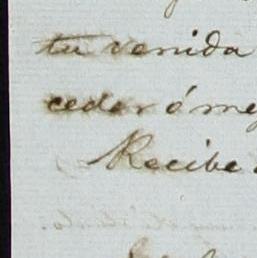 tu venida
ceder ó me
Recibe